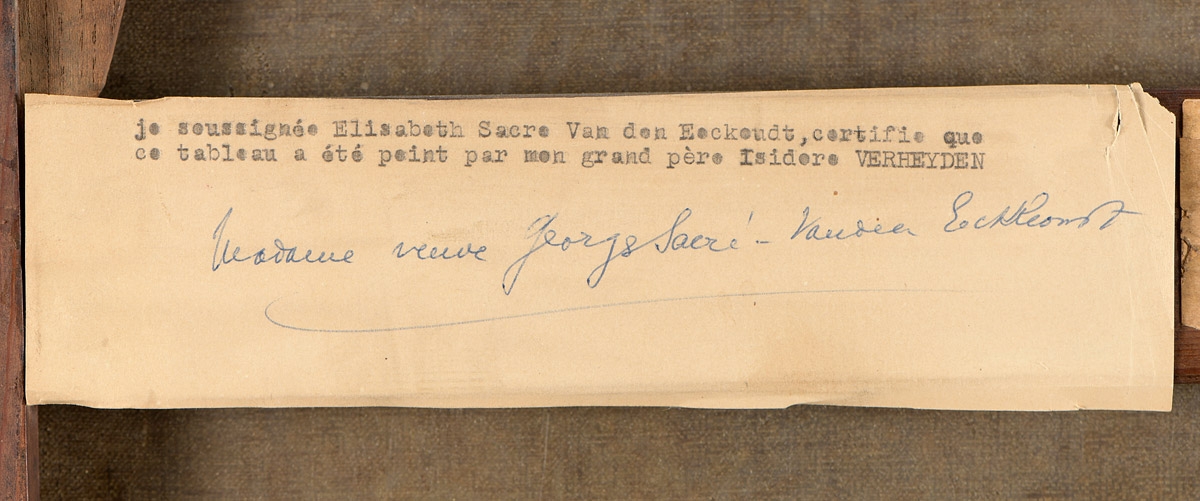 je soussignée Elisabeth Sacre Van den Eeckoudt,certifie que
ce tableau a été peint par mon grand père Isidore VERHEYDEN
Madame veuve Georges Sacré - Vanden Eeckhoudt